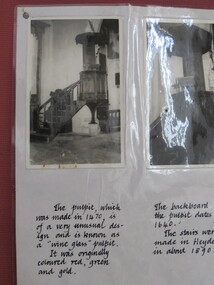 The pulpit, which
was made in 1470, is
of a very unusual des-
ign and is known as
a "wine glass" pulpit.
It was originally
coloured red, green
and gold.
The backboard
the pulpit dates
1640.
The stairs wer
made in Heyd
in about 1890.